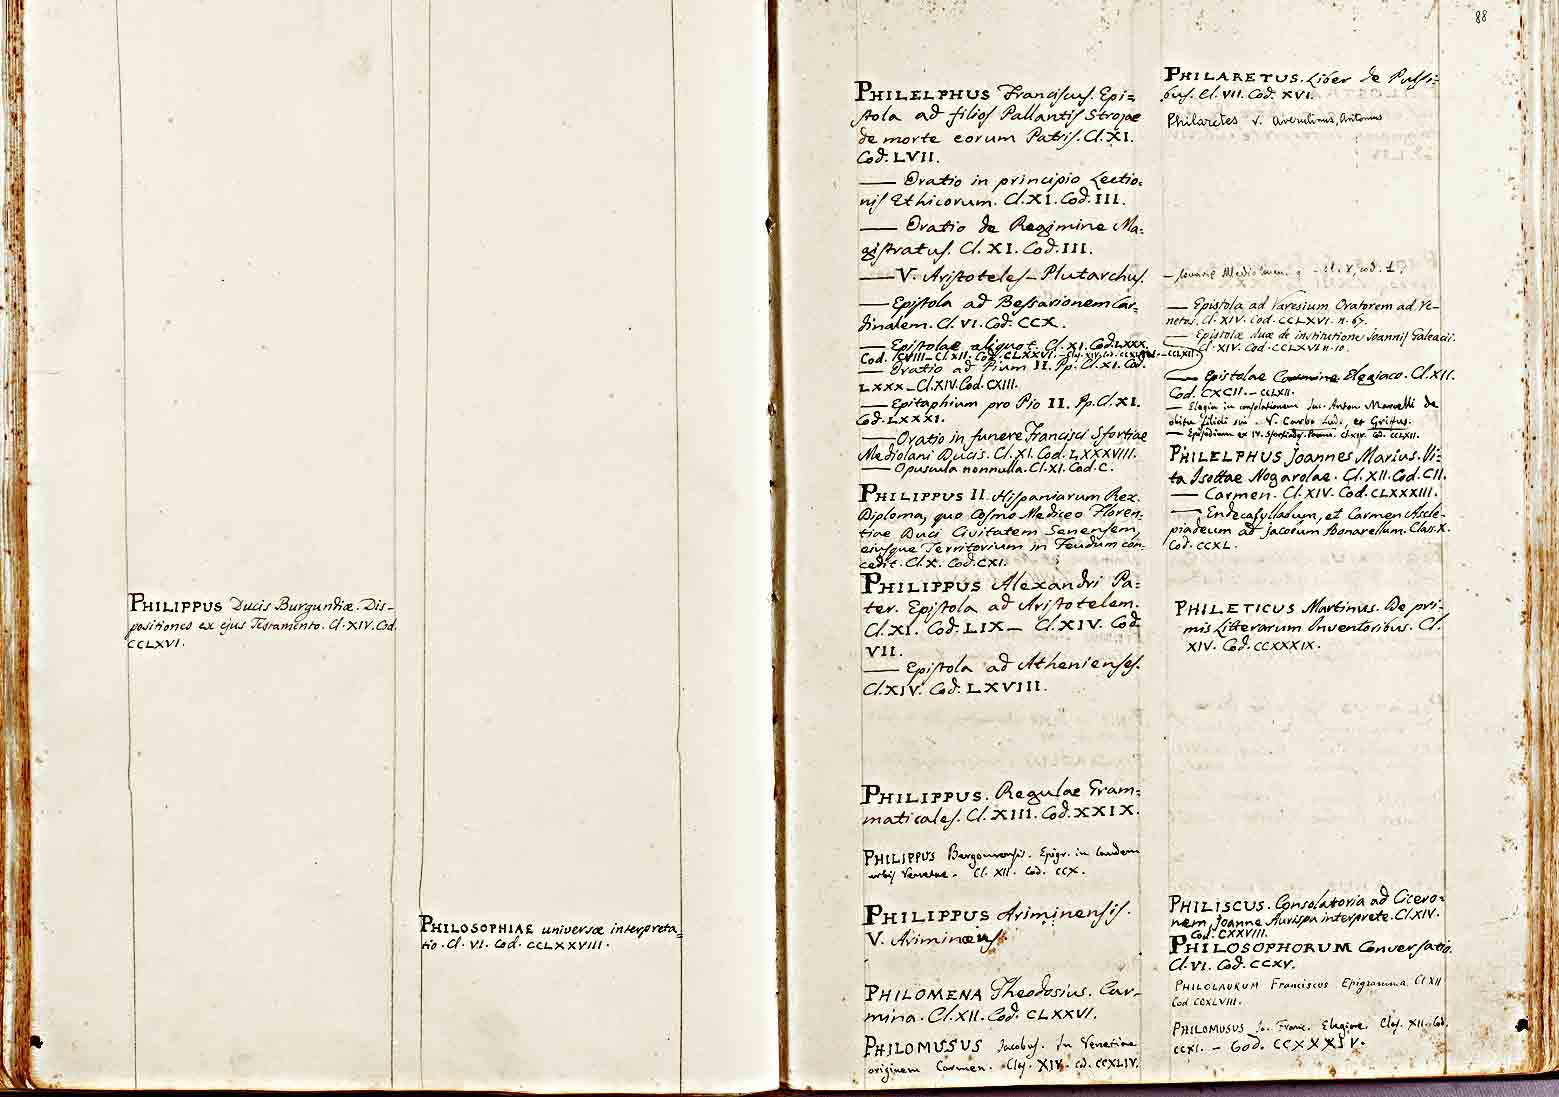 PHILIPPUS Ducis Burgundiæ. Dis-
positiones ex ejus Testamento. Cl. XIV. Cod.
CCLXVI.
PHILOSOPHIAE universæ interpreta=
tio. Cl. VI. Cod. CCLXXVIII.
88
PHILELPHUS Franciscus. Epi=
stola ad filios Pallantis Strozæ
de morte eorum Patris. Cl. XI.
Cod. LVII.
—— Oratio in principio Lectio=
nis Ethicorum. Cl. XI. Cod. III.
—— Oratio de Regimine Ma=
gistratus. Cl. XI. Cod. III.
—— V. Aristoteles – Plutarchus.
—— Epistola ad Bessarionem Car=
dinalem. Cl. VI. Cod. CCX.
—— Epistolae aliquot. Cl. XI. Cod. LXXX.
Cod. – Cl. XII. Cod. CLXXVI. – – CCLXII
—— Oratio ad Pium II. Pp. Cl. XI. Cod.
LXXX – Cl. XIV. Cod. CXIII.
—— Epitaphium pro Pio II. Pp. Cl. XI.
Cod. LXXXI.
—— Oratio in funere Francisci Sfortiae
Mediolani Ducis. Cl. XI. Cod. LXXXVIII.
—— Opuscula nonnulla. Cl. XI. Cod. C.
PHILIPPUS II. Hispaniarum Rex.
Diploma, quo Cosmo Mediceo Floren=
tiae Duci Civitatem Senensem,
ejusque Territorium in Feudum con=
cedit. Cl. X. Cod. CXI.
PHILIPPUS Alexandri Pa=
ter. Epistola ad Aristotelem.
Cl. XI. Cod. LIX – Cl. XIV. Cod.
VII.
—— Epistola ad Athenienses.
Cl. XIV. Cod. LXVIII.
PHILIPPUS. Regulae Gram=
maticales. Cl. XIII. Cod. XXIX.
PHILIPPUS Epigr. in laudem
urbis Venetae. Cl. XII. Cod. CCX.
PHILIPPUS Ariminensis.
V. Ariminens.
PHILOMENA Theodosius. Car=
mina. Cl. XII. Cod. CLXXVI.
PHILOMUSUS Jacobus. In Venetiae
originem Carmen. Clas. XIV. cd. CCXLIV.
PHILARETUS. Liber de Pulsi=
bus. Cl. VII. Cod. XVI.
Philaretes v. Averulinus, Antonius
— cl. X, cod. 1
—— Epistola ad Varesium Oratorem ad Ve-
netos. Cl. XIV. Cod. CCLXVI. n. 67.
—— Epistolæ duæ de institutione Joannis Galeacii.
Cl. XIV. Cod. CCLXVI n. 10.
—— Epistolae Carmine Elegiaco. Cl. XII.
Cod. CXCII. – CCLXII.
—— Elegia in consolationem Jac. Anton. Marcelli de
obitu filioli sui. V. Carbo Lud., et Griffus.
—— Cl. XIV. Cd. CCLXII.
PHILELPHUS Joannes Marius. Vi=
ta Isottae Nogarolae. Cl. XII. Cod. CII.
—— Carmen. Cl. XIV. Cod. CLXXXIII.
—— Endecasyllabum, et Carmen Ascle=
piadeum ad Jacobum Bonarellum. Class. X.
Cod. CCXL.
PHILETICUS Martinus. De pri=
mis Litterarum Inventoribus. Cl.
XIV. Cod. CCXXXIX.
PHILISCUS. Consolatoria ad Cicero=
nem Joanne Aurispa interprete. Cl. XIV.
Cod. CXXVIII.
PHILOSOPHORUM Conversatio.
Cl. VI. Cod. CCXV.
PHILOLAURUM Franciscus Epigramma Cl XII
Cod CCXLVIII.
PHILOMUSUS Jo. Franc. Elegiae. Clas. XII. Cod.
CCXI. – Cod. CCXXXIV.